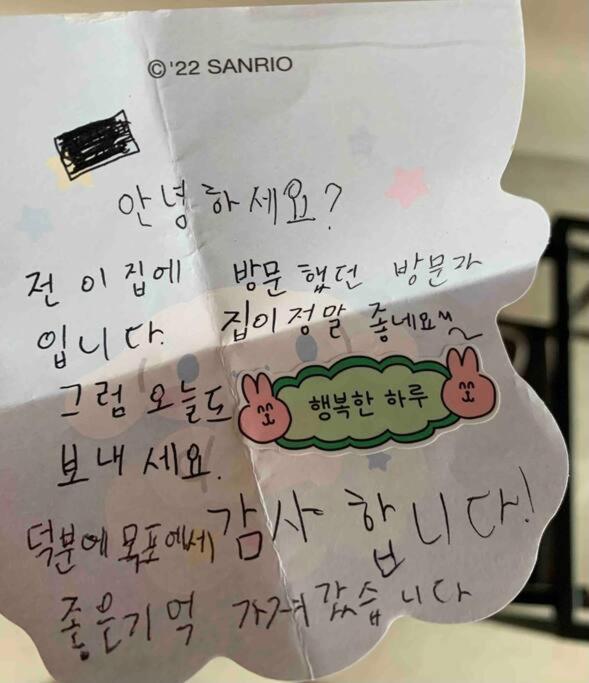 ©'22 SANRIO
안녕하세요?
전 이 집에 방문했던 방문가
입니다. 집이 정말 좋네요~
그럼 오늘도 행복한 하루
보내세요.
덕분에 목포에서 감사합니다!
좋은기억 가져갔습니다